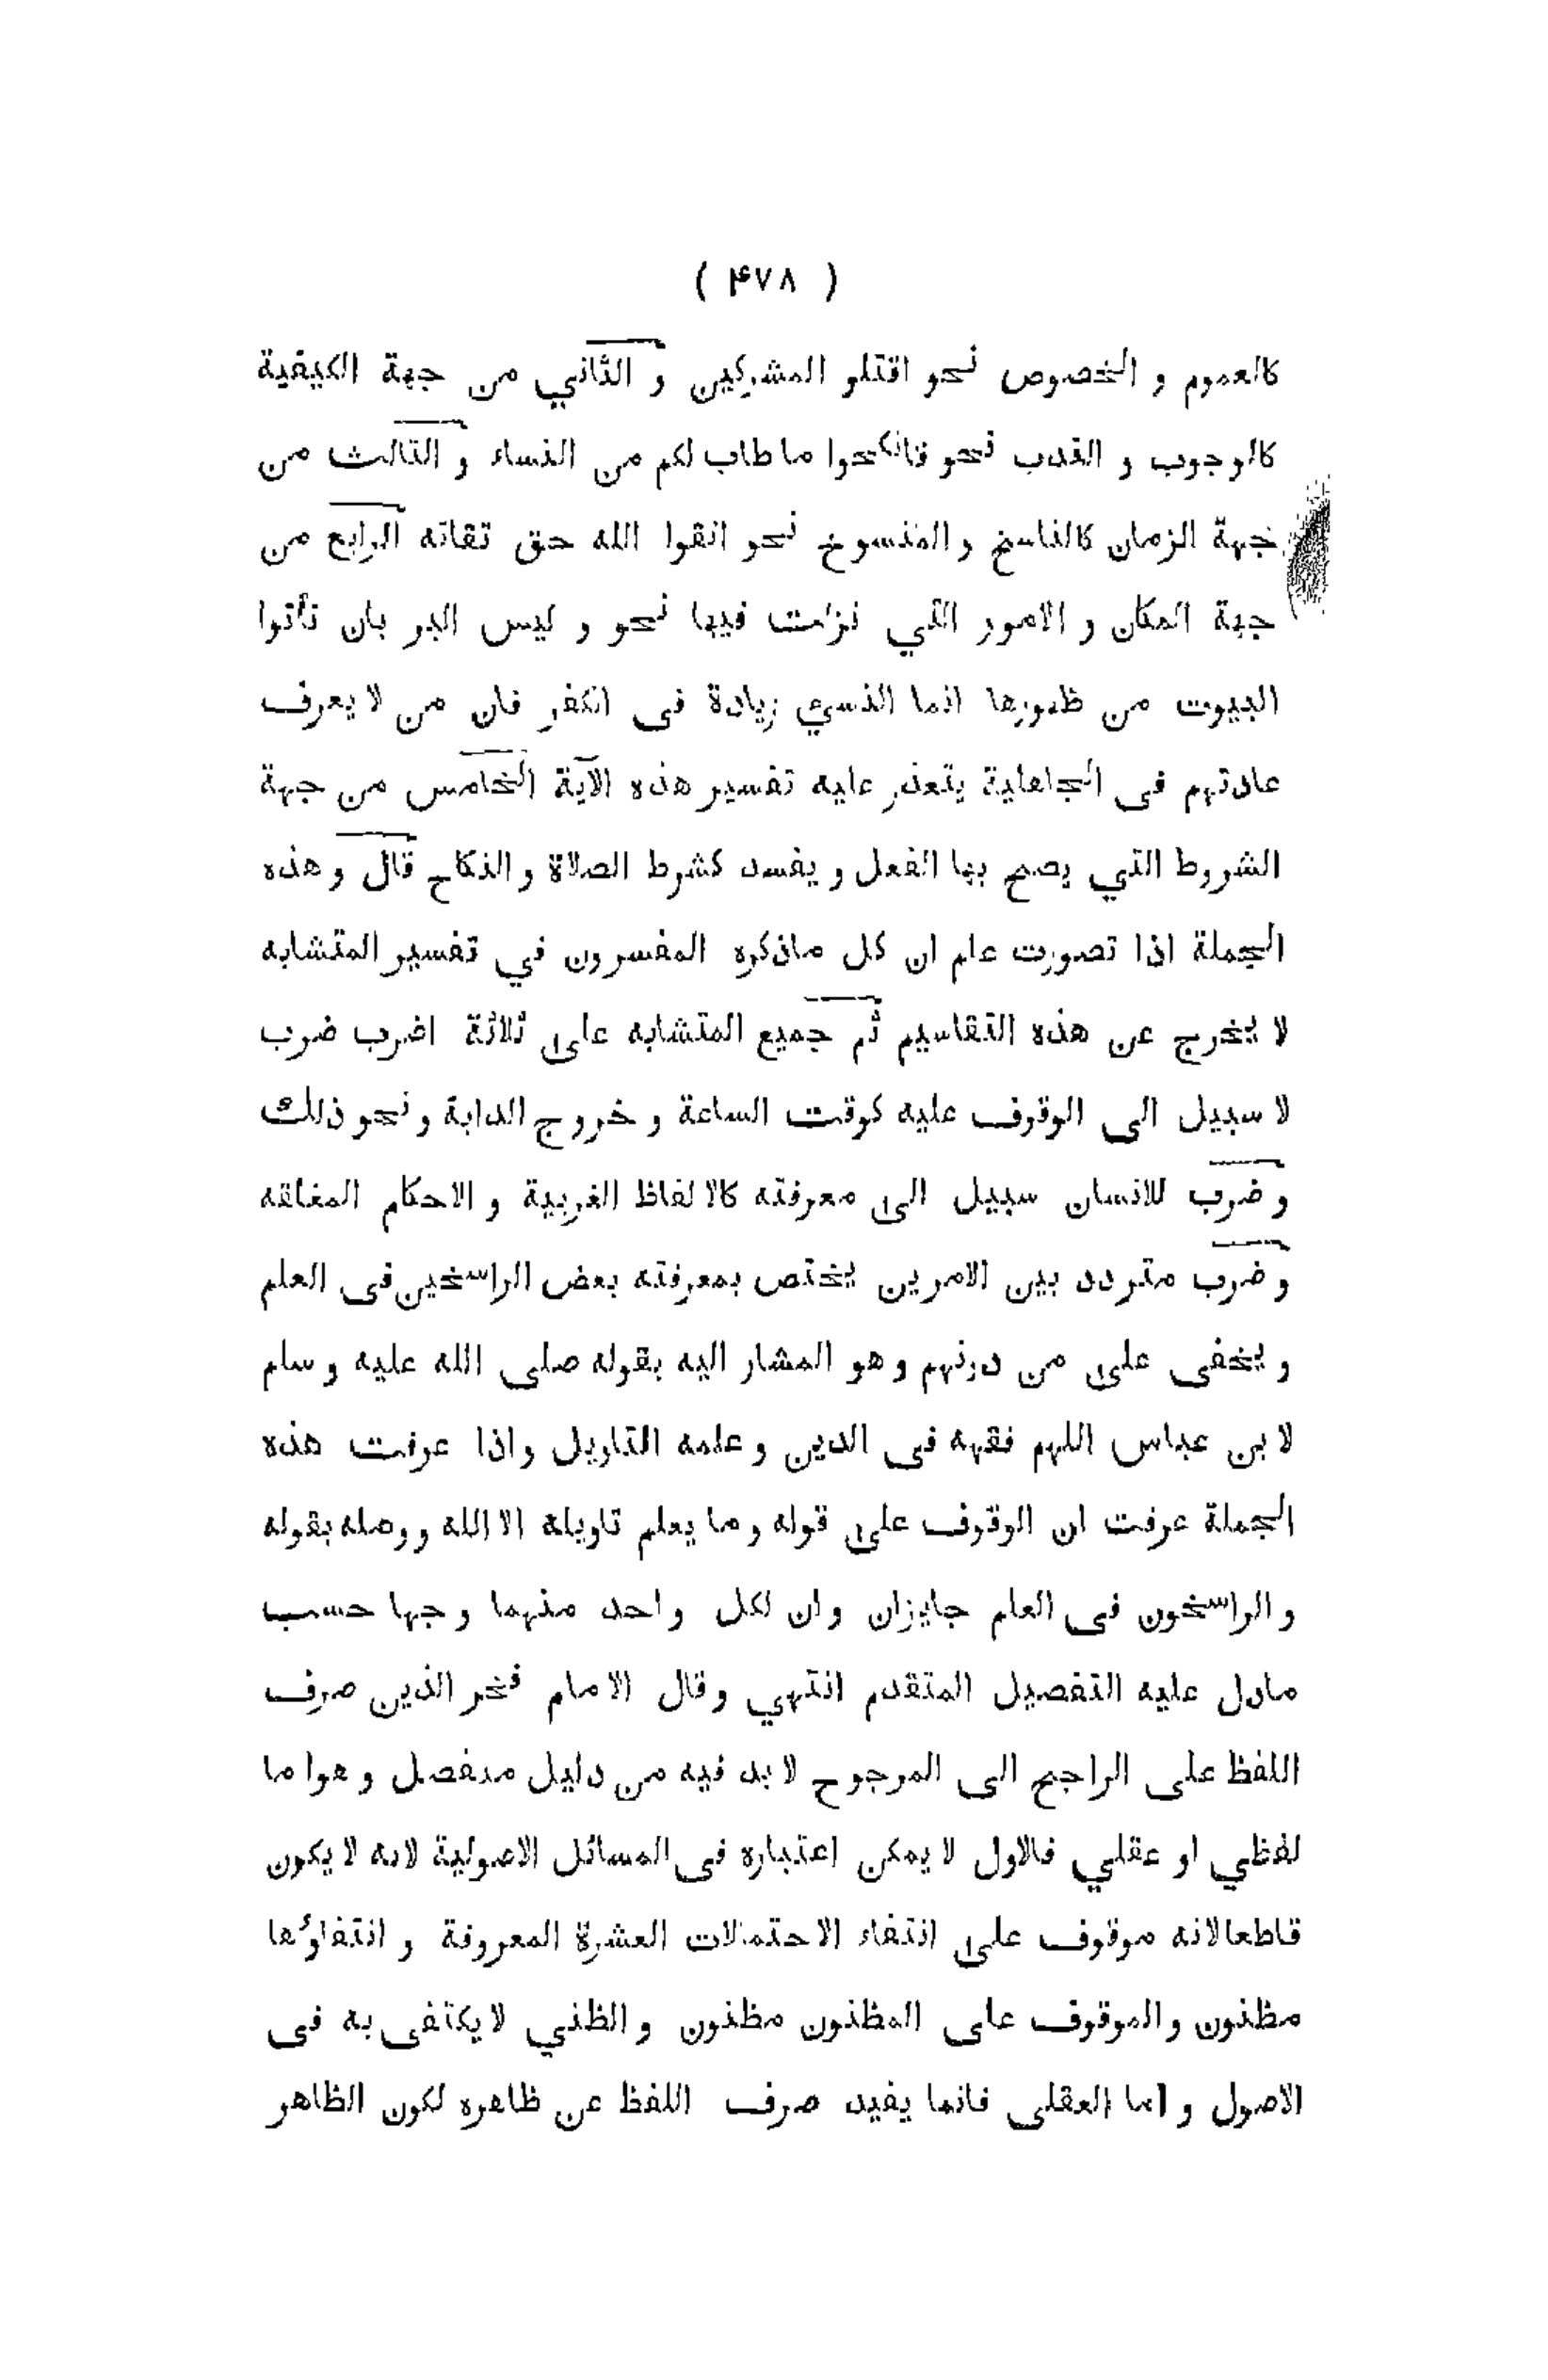 ( ۴۷۸ )
كالعموم و الخصوص نحو اقتلو المشركين و الثاني من جهة الكيفية
كالوجوب و الندب نحو فانكحوا ما طاب لكم من النساء و الثالث من
جهة الزمان كالناسخ و المنسوخ نحو اتقوا الله حق تقاته الرابع من
جهة المكان و الامور التي نزلت فيها نحو و ليس البر بان تأتوا
البيوت من ظهورها انما النسيء زيادة فى الكفر فان من لا يعرف
عادتهم فى الجاهلية يتعذر عليه تفسير هذه الآية الخامس من جهة
الشروط التي يصح بها الفعل و يفسد كشرط الصلاة و النكاح قال و هذه
الجملة اذا تصورت علم ان كل ماذكره المفسرون في تفسير المتشابه
لا يخرج عن هذه التقاسيم ثم جميع المتشابه على ثلاثة اضرب ضرب
لا سبيل الى الوقوف عليه كوقت الساعة و خروج الدابة و نحو ذلك
و ضرب للانسان سبيل الى معرفته كالالفاظ الغريبة و الاحكام المغلقه
و ضرب متردد بين الامرين يختص بمعرفته بعض الراسخين فى العلم
و يخفى على من دونهم و هو المشار اليه بقوله صلى الله عليه و سلم
لابن عباس اللهم فقهه فى الدين و علمه التاويل و اذا عرفت هذه
الجملة عرفت ان الوقوف على قوله و ما يعلم تاويله الا الله و وصله بقوله
و الراسخون فى العلم جايزان و ان لكل واحد منهما وجها حسب
مادل عليه التفصيل المتقدم انتهي و قال الامام فخر الدين صرف
اللفظ على الراجح الى المرجوح لابد فيه من دليل منفصل و هو اما
لفظي او عقلي فالاول لا يمكن اعتباره فى المسائل الاصولية لانه لا يكون
قاطعا لانه موقوف على انتفاء الاحتمالات العشرة المعروفة و انتفاؤها
مظنون و الموقوف على المظنون مظنون و الظني لا يكتفى به فى
الاصول و اما العقلى فانما يفيد صرف اللفظ عن ظاهره لكون الظاهر